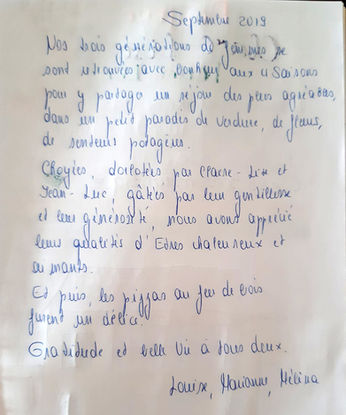 Septembre 2019
Nos trois générations de femmes se
sont retrouvées avec bonheur aux 4 Saisons
pour y partager un séjour des plus agréables,
dans un petit paradis de verdure, de fleurs,
de senteurs potagères.
Choyées, dorlotées par Claire-Lise et
Jean-Luc, gâtées par leur gentillesse
et leur générosité, nous avons apprécié
leurs qualités d'Etres chaleureux et
aimants.
Et puis, les pizzas au feu de bois
furent un délice.
Gratitude et belle Vie à tous deux.
Louise, Marianne, Mélina